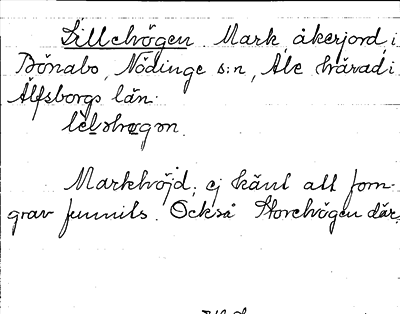 Lillehögen. Mark, åkerjord, i
Bönabo, Nödinge s:n, Ale härad i
Älfsborgs län.
Markhöjd; ej känt att forn-
grav funnits. Också Storehögen där.